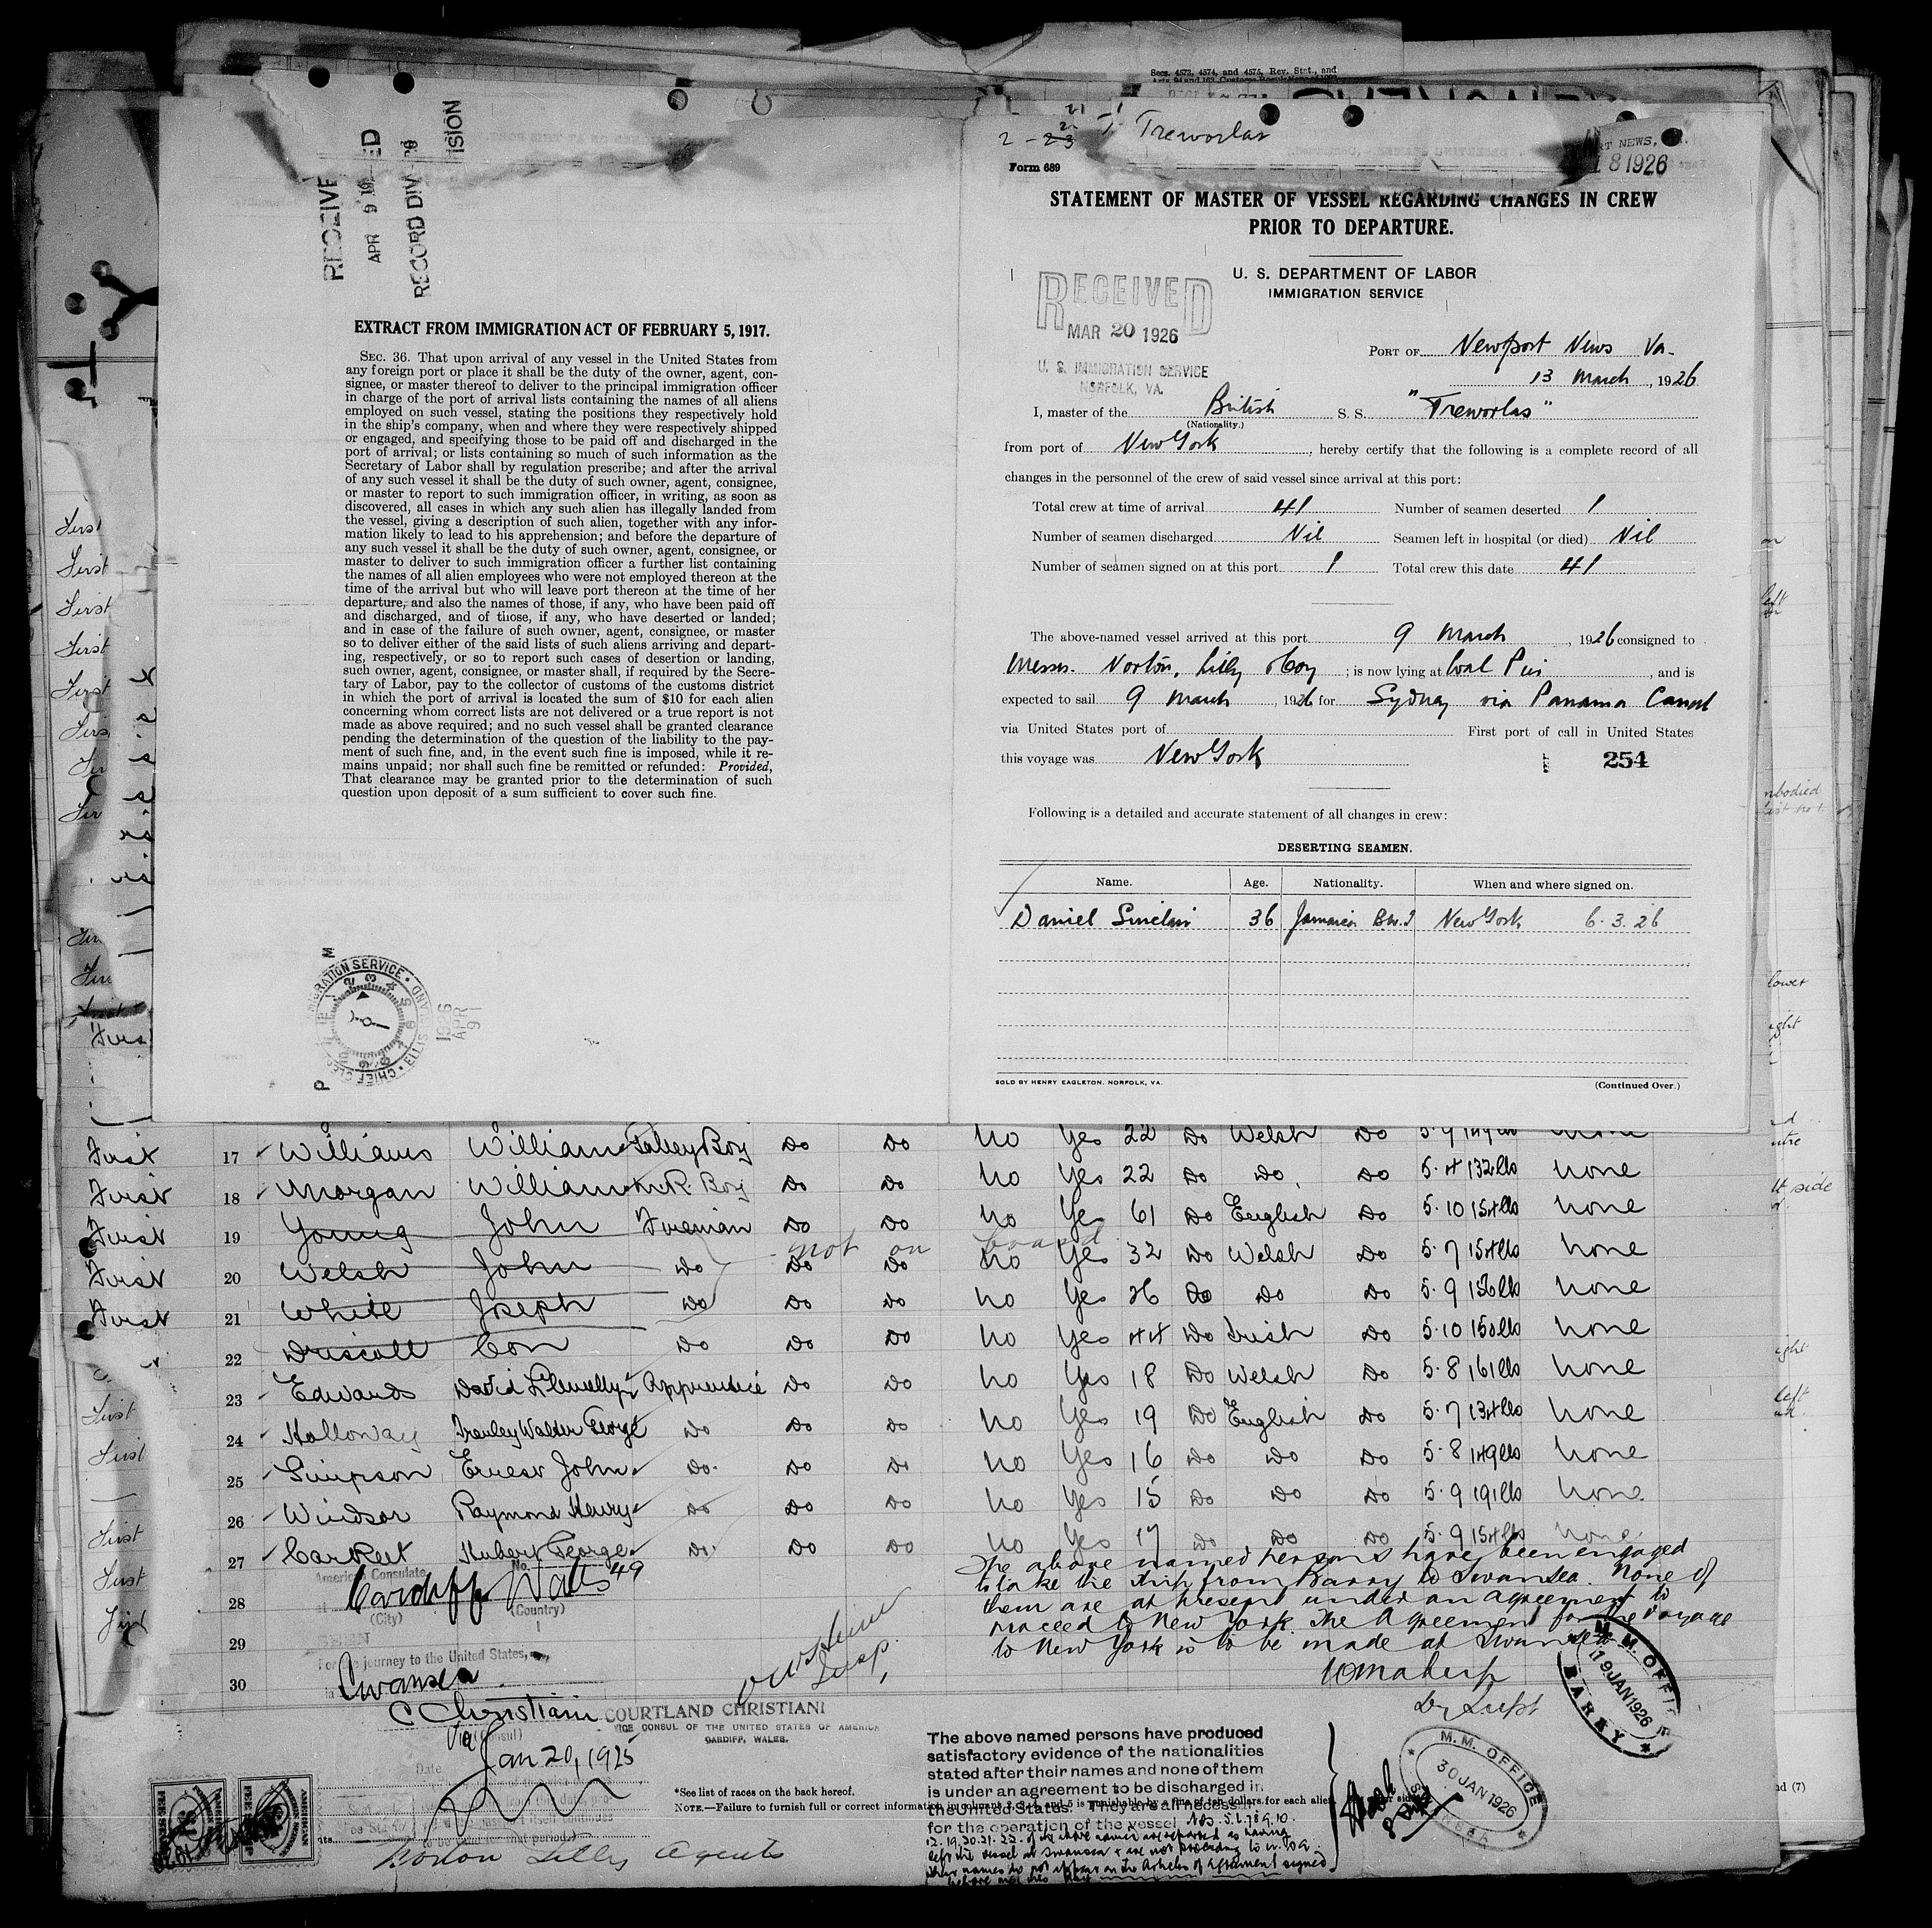 Secs. 4573, 4574, and 4575, Rev. Stat., and
RECEIVE
APR 9 19 ED
RECORD DIV
ISION
EXTRACT FROM IMMIGRATION ACT OF FEBRUARY 5, 1917.
SEC. 36. That upon arrival of any vessel in the United States from
any foreign port or place it shall be the duty of the owner, agent, con-
signee, or master thereof to deliver to the principal immigration officer
in charge of the port of arrival lists containing the names of all aliens
employed on such vessel, stating the positions they respectively hold
in the ship's company, when and where they were respectively shipped
or engaged, and specifying those to be paid off and discharged in the
port of arrival; or lists containing so much of such information as the
Secretary of Labor shall by regulation prescribe; and after the arrival
of any such vessel it shall be the duty of such owner, agent, consignee,
or master to report to such immigration officer, in writing, as soon as
discovered, all cases in which any such alien has illegally landed from
the vessel, giving a description of such alien, together with any infor-
mation likely to lead to his apprehension; and before the departure of
any such vessel it shall be the duty of such owner, agent, consignee, or
master to deliver to such immigration officer a further list containing
the names of all alien employees who were not employed thereon at the
time of the arrival but who will leave port thereon at the time of her
departure, and also the names of those, if any, who have been paid off
and discharged, and of those, if any, who have deserted or landed;
and in case of the failure of such owner, agent, consignee, or master
so to deliver either of the said lists of such aliens arriving and depart-
ing, respectively, or so to report such cases of desertion or landing,
such owner, agent, consignee, or master shall, if required by the Secre-
tary of Labor, pay to the collector of customs of the customs district
in which the port of arrival is located the sum of $10 for each alien
concerning whom correct lists are not delivered or a true report is not
made as above required; and no such vessel shall be granted clearance
pending the determination of the question of the liability to the pay-
ment of such fine, and, in the event such fine is imposed, while it re-
mains unpaid; nor shall such fine be remitted or refunded: Provided,
That clearance may be granted prior to the determination of such
question upon deposit of a sum sufficient to cover such fine.
IMMIGRATION SERVICE ELLIS ISLAND CHIEF CLERK
1926 APR 9
2 - 23 Treworlas
RT NEWS,
18 1926
Form 689
STATEMENT OF MASTER OF VESSEL REGARDING CHANGES IN CREW
PRIOR TO DEPARTURE.
U. S. DEPARTMENT OF LABOR
IMMIGRATION SERVICE
RECEIVED
MAR 20 1926
U. S. IMMIGRATION SERVICE
NORFOLK, VA.
PORT OF Newport News Va.
13 March, 1926
I, master of the British S. S. "Treworlas"
(Nationality.)
from port of New York, hereby certify that the following is a complete record of all
changes in the personnel of the crew of said vessel since arrival at this port:
Total crew at time of arrival 41 Number of seamen deserted 1
Number of seamen discharged Nil Seamen left in hospital (or died) Nil
Number of seamen signed on at this port 1 Total crew this date 41
The above-named vessel arrived at this port 9 March, 1926 consigned to
Messrs. Norton, Lilly & Coy; is now lying at Coal Pier, and is
expected to sail 9 March, 1926 for Sydney via Panama Canal
via United States port of First port of call in United States
this voyage was New York
254
Following is a detailed and accurate statement of all changes in crew:
DESERTING SEAMEN.
Name. Age. Nationality. When and where signed on.
Daniel Sinclair 36 Jamaica B.W.I New York 6.3.26
SOLD BY HENRY EAGLETON. NORFOLK, VA. (Continued Over.)
First 17 Williams William Galley Boy Do Do No Yes 22 Do Welsh Do 5.9 149 lbs none
First 18 Morgan William M.R. Boy Do Do No Yes 22 Do Do Do 5.4 132 lbs none
First 19 Young John Fireman Do Do No Yes 61 Do English Do 5.10 154 lbs none
not on board
First 20 Welsh John Do Do Do No Yes 32 Do Welsh Do 5.7 154 lbs none
First 21 White Joseph Do Do Do No Yes 26 Do Do Do 5.9 156 lbs none
22 Driscoll Con Do Do Do No Yes 44 Do Irish Do 5.10 150 lbs none
23 Edwards David Llewellyn Apprentice Do Do No Yes 18 Do Welsh Do 5.8 161 lbs none
First 24 Holloway Stanley Walter George Do Do Do No Yes 19 Do English Do 5.7 134 lbs none
First 25 Simpson Ernest John Do Do Do No Yes 16 Do Do Do 5.8 149 lbs none
26 Windsor Raymond Henry Do Do Do No Yes 15 Do Do Do 5.9 191 lbs none
First 27 Carkeet Hubert George Do Do Do No Yes 17 Do Do Do 5.9 154 lbs none
American Consulate No. 49
Cardiff Wales
(City) (Country)
28
29
30
For the journey to the United States,
Swansea
C Christiani
Vice (Consul)
COURTLAND CHRISTIANI
VICE CONSUL OF THE UNITED STATES OF AMERICA
CARDIFF, WALES.
Date Jan 20, 1925
The above named persons have been engaged
to take the ship from Barry to Swansea. None of
them are at present under an agreement to
proceed to New York. The Agreement for the voyage
to New York is to be made at Swansea
Dy Supt
M. M. OFFICE
19 JAN 1926
BARRY
The above named persons have produced
satisfactory evidence of the nationalities
stated after their names and none of them
is under an agreement to be discharged in
the United States. They are all necess
for the operation of the vessel Nos. 5.6.7.8.9.10.
12.19.20.21.22. of the above names are reported as having
left the vessel at Swansea & are not proceeding to U.S.A.
Their names do not appear on the Articles of Agreement signed
before me this day
M. M. OFFICE
30 JAN 1926
*See list of races on the back hereof.
NOTE.—Failure to furnish full or correct information in columns 2, 3, 4, and 5 is punishable by a fine of ten dollars for each alien
Norton Lilly Agents